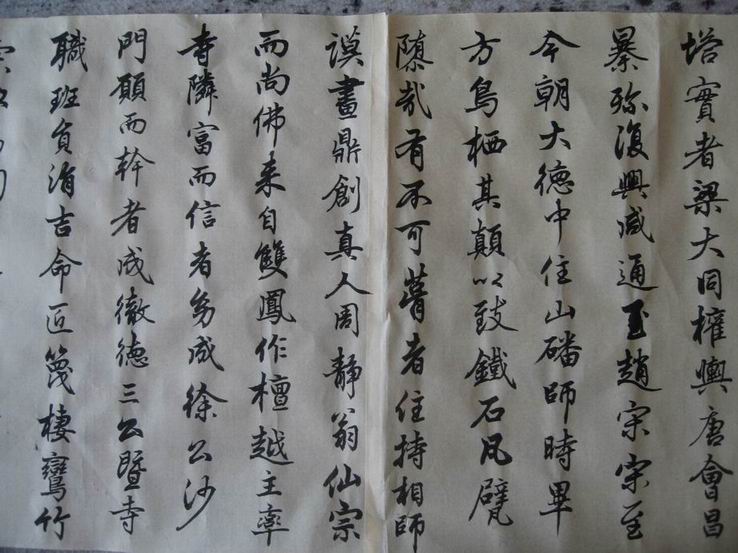 塔實者梁大同權輿唐會昌
暴殄復興咸通至趙宋宗至
今朝大德中住山磻師時畢
方鳥栖其顛以致鐵石凡甓
隳哉有不可者住持相師
謨畫鼎創真人周靜翁仙宗
而尚佛来自雙鳳作檀越主率
寺隣富而信者多咸徐公沙
門願而幹者咸徹德三公暨寺
職班負涓吉命匠篾棲鸞竹